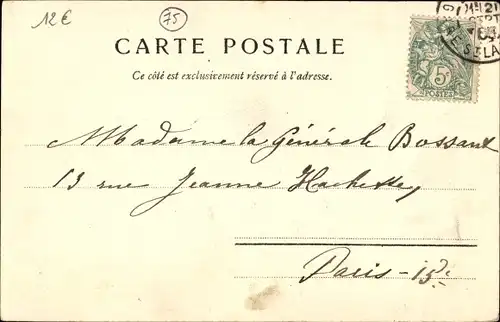 12€
75
CARTE POSTALE
Ce côté est exclusivement réservé à l'adresse.
5c
POSTES
Madame la Générale Bossant
13 rue Jeanne Hachette,
Paris - 15e